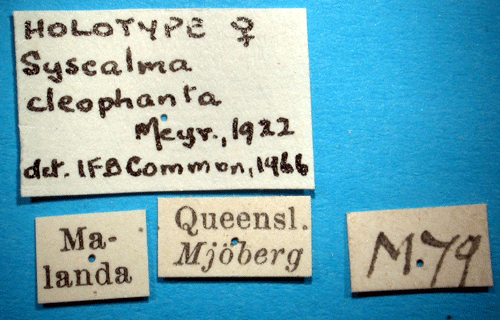 HOLOTYPE ♀
Syscalma
cleophanta
Meyr., 1922
det. IFB Common, 1966
Ma-
landa
Queensl.
Mjöberg
M.79